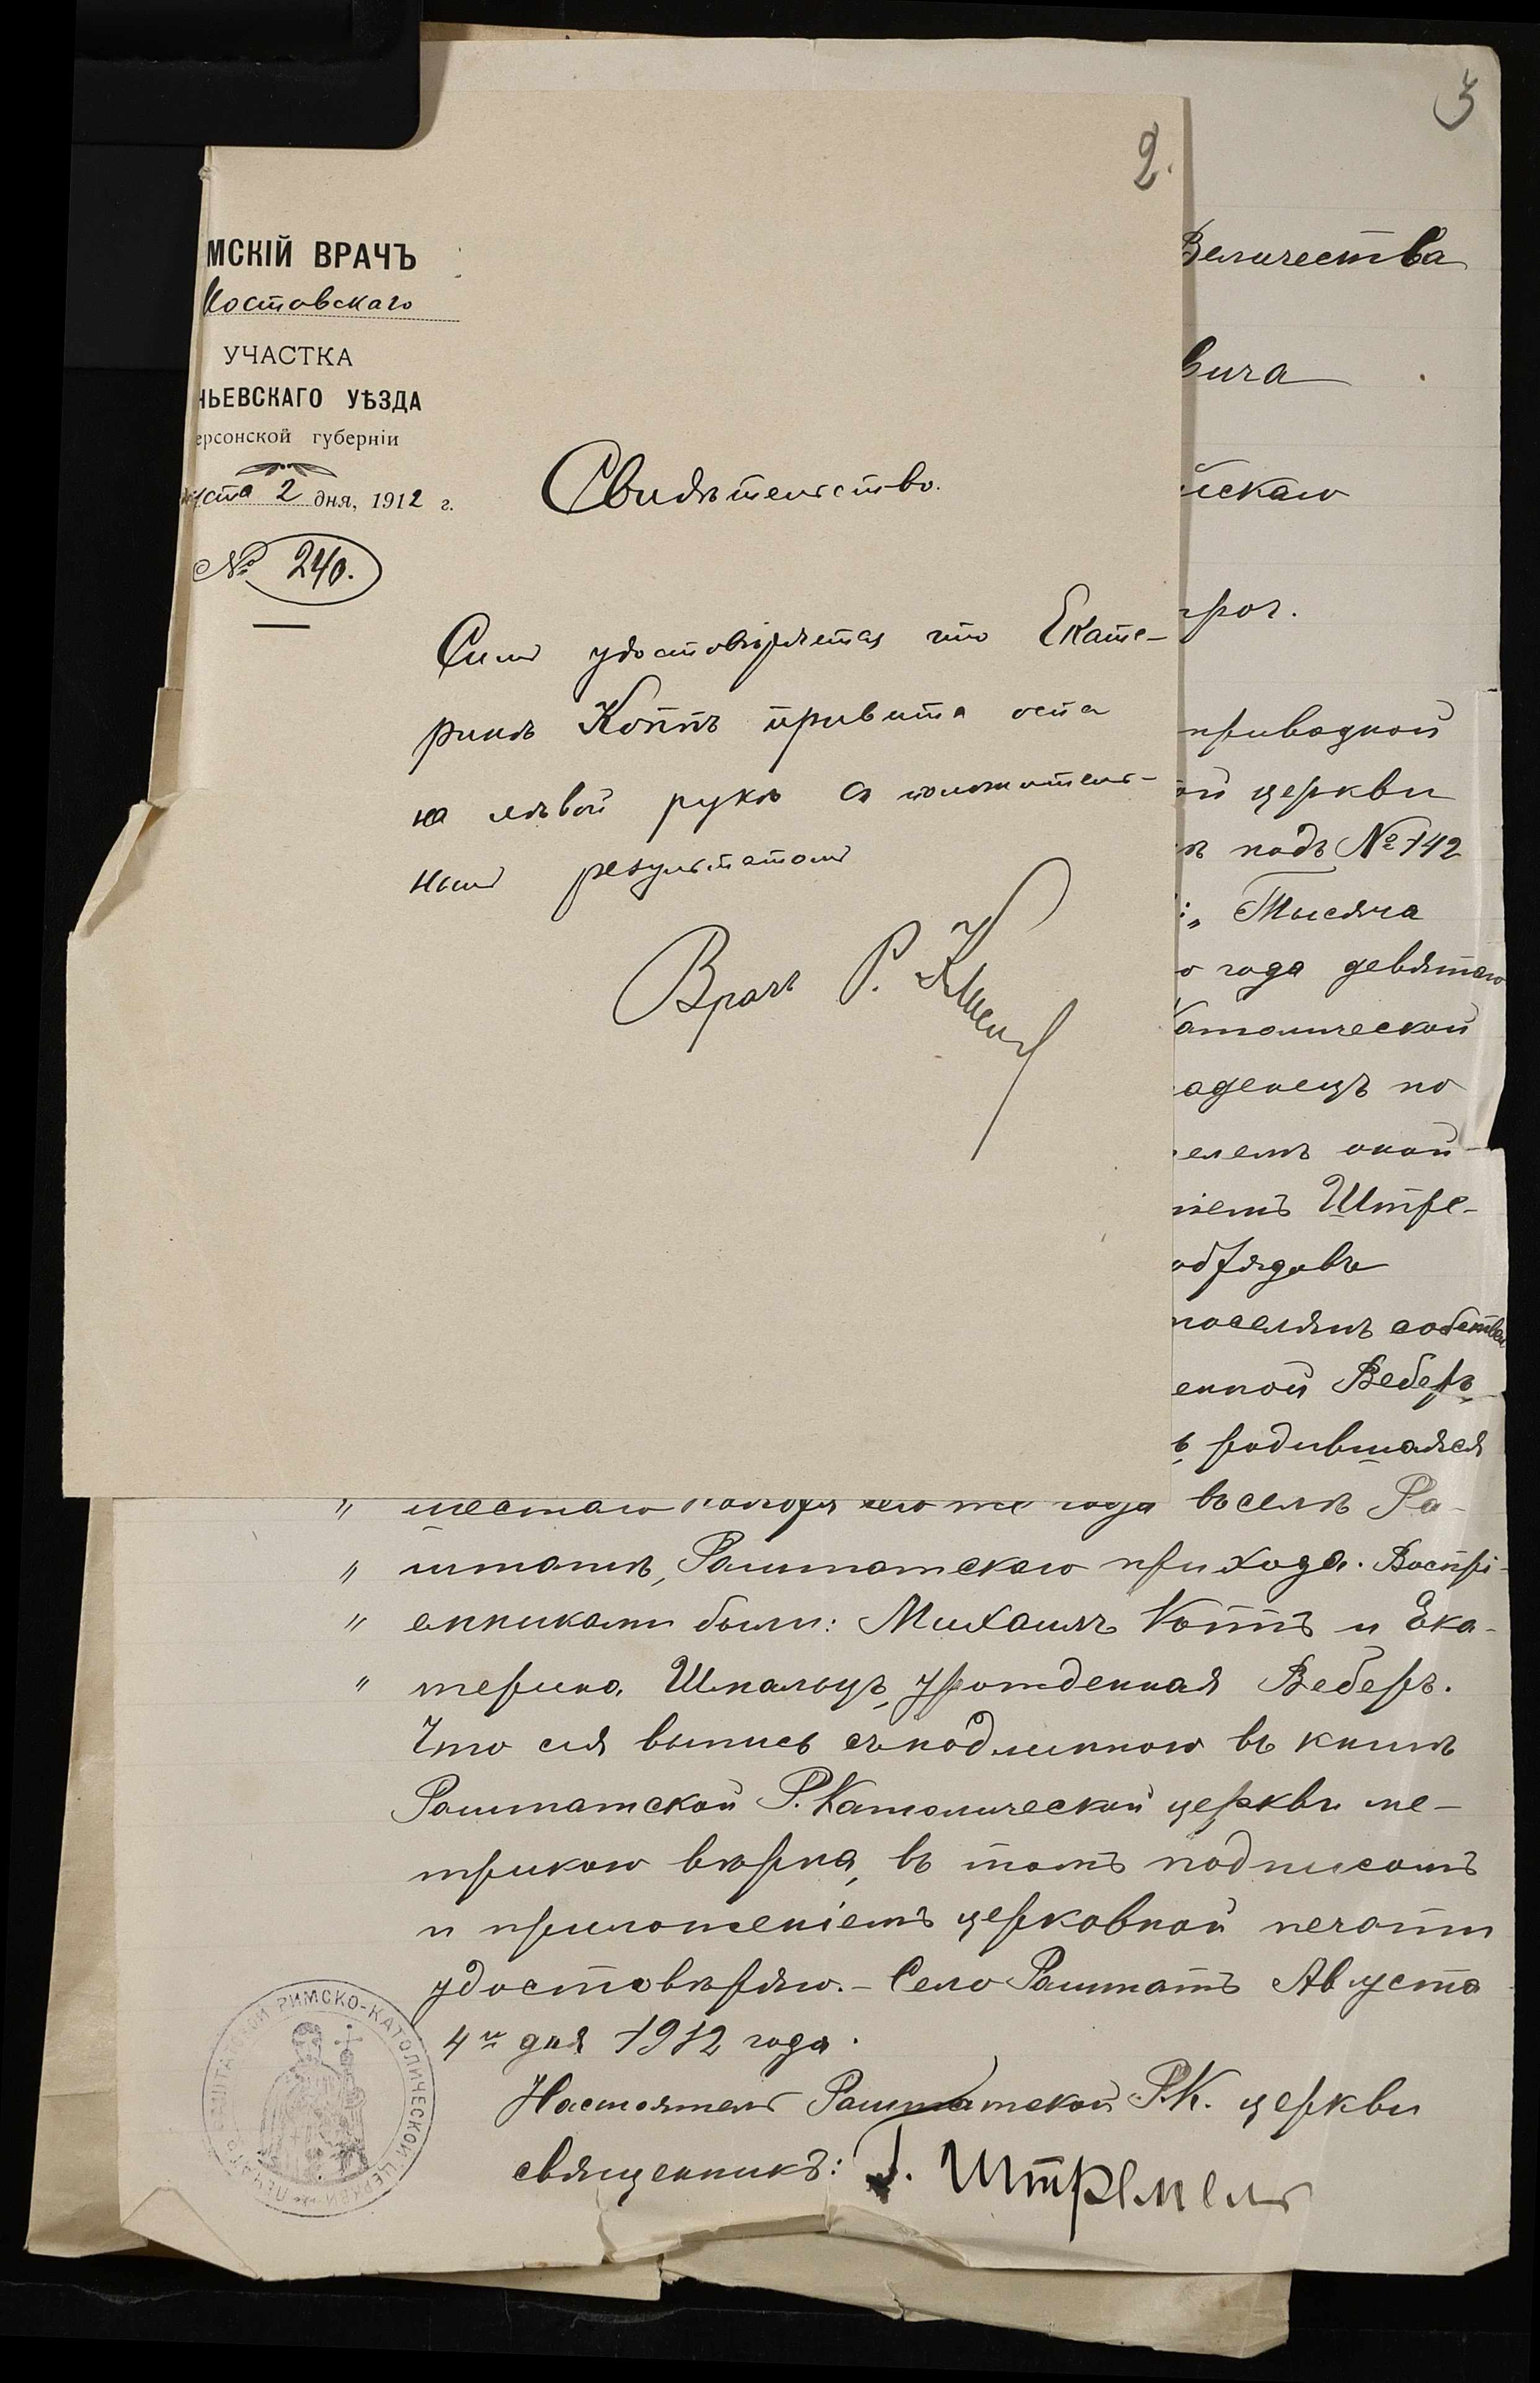 2.
МСКІЙ ВРАЧЪ
Мостовскаго
УЧАСТКА
НЬЕВСКАГО УѢЗДА
ерсонской губерніи
уста 2 дня, 1912 г.
№ 240.
Свидѣтельство.
Симъ удостовѣряется что Екате-
ринѣ Коппъ привита оспа
на лѣвой рукѣ съ положитель-
нымъ результатомъ
Врачъ Р.
3
Величества
вича
йскаго
проч.
приводной
ой церкви
ѣ подъ № 142
: „ Тысяча
о года девятаго
Католической
аденецъ по
елемъ оной
ніемъ Штре-
обрядовъ
поселянъ собствен
енной Веберъ
ъ, родившаяся
" шестаго Ноября сего же года въ селѣ Ра-
" штатѣ, Раштатскаго прихода. Воспрі-
" емниками были: Михаилъ Коппъ и Ека-
" терина Шмальцъ, урожденная Веберъ.
Что сія выпись съ подлинною въ книгѣ
Раштатской Р. Католической церкви ме-
трикою вѣрна, въ томъ подписомъ
и приложеніемъ церковной печати
удостовѣряю. - Село Раштатъ Августа
4го дня 1912 года.
Настоятель Раштатской Р.К. церкви
священникъ: Г. Штремель
РАШТАТСКОЙ РИМСКО-КАТОЛИЧЕСКОЙ ЦЕРКВИ